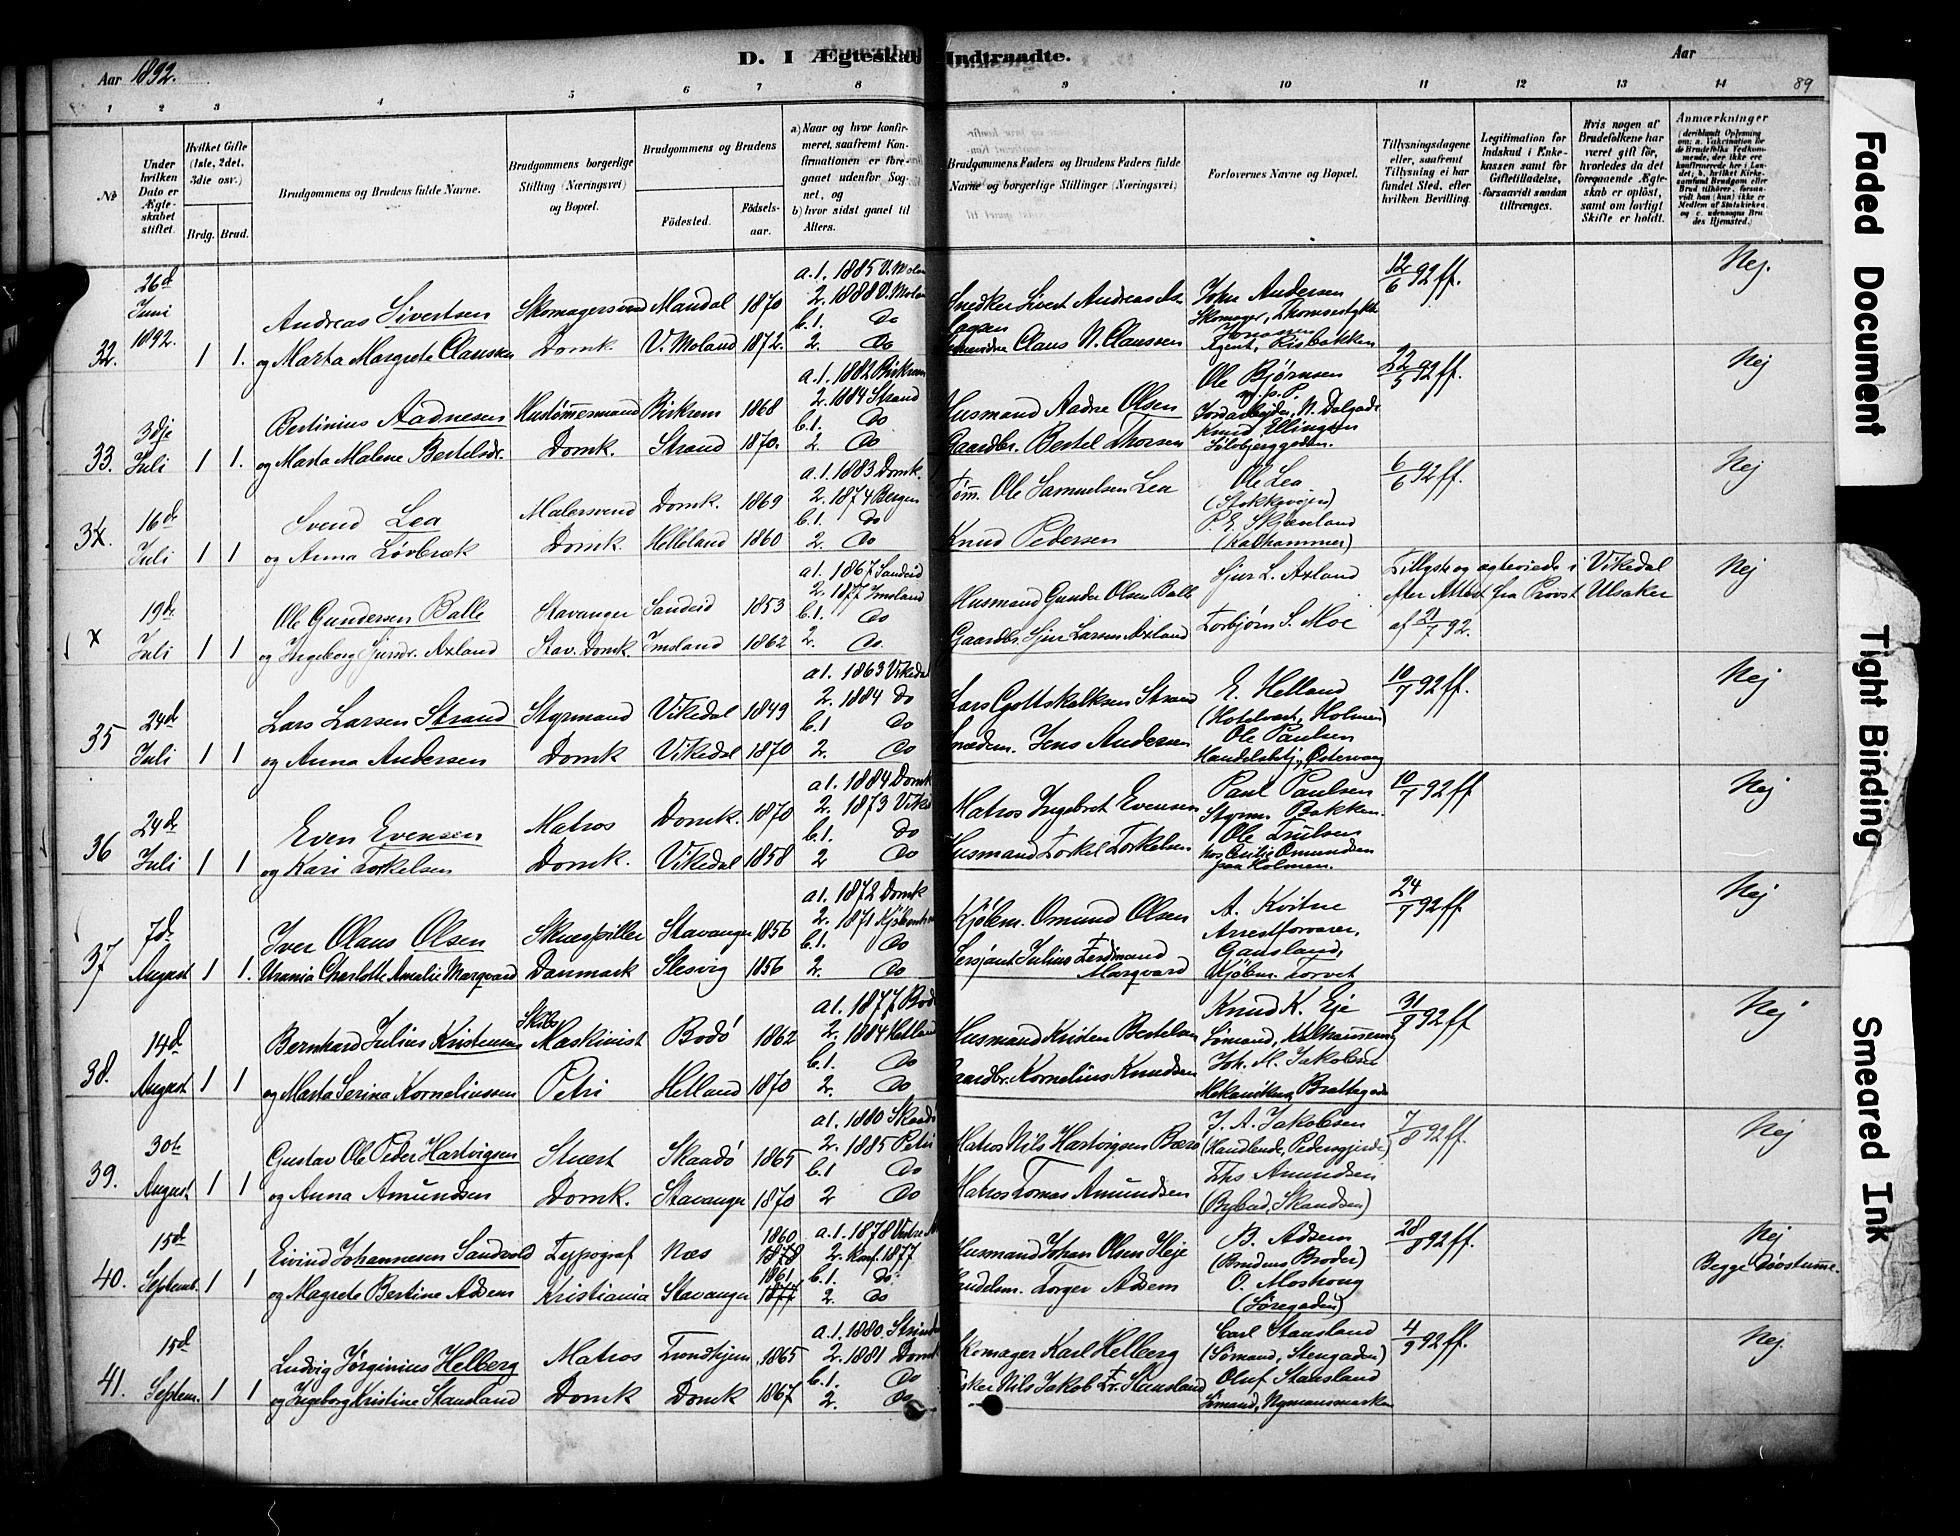 D. I Ægteskab Indtraadte.
Aar 1892.
Aar
89
1 2 3 4 5 6 7 8 9 10 11 12 13 14
No
Under hvilken Dato er Ægteskabet stiftet.
Hvilket Gifte (1ste, 2det, 3die osv.)
Brdg. Brud.
Brudgommens og Brudens fulde Navne.
Brudgommens borgerlige Stilling (Næringsvei) og Bopæl.
Brudgommens og Brudens
Fødested.
Fødselsaar.
a) Naar og hvor konfirmeret, saafremt Konfirmationen er foregaaet udenfor Sognet, og
b) hvor sidst gaaet til Alters.
Brudgommens Faders og Brudens Faders fulde Navne og borgerlige Stillinger (Næringsvei)
Forlovernes Navne og Bopæl.
Tillysningsdagene eller, saafremt Tillysning ei har fundet Sted, efter hvilken Bevilling.
Legitimation for Indskud i Enkekassen samt for Giftetilladelse, forsaavidt saadan tiltrænges.
Hvis nogen af Brudefolkene har været gift før, hvorledes da det foregaaende Ægteskab er opløst, samt om lovligt Skifte er holdt.
Anmærkninger
32. 26d Juni 1892. 1 1.
Andreas Sivertsen Skomagersvend Mandal 1870
og Marta Margrete Claussen Domk. V. Moland 1872.
a. 1. 1885 V. Molan
2. 1888 V. Molan
b. 1. Do
2. Do
Snedker Sivert Andreas
Claus N. Claussen
John Andersen
Skomager,
Jonassen
Agent, Risbakken
12/6 92 ff.
Nej.
33. 3dje Juli 1 1.
Bertinius Aadnesen Birkrem 1868
og Marta Malene Bertelsdr. Domk. Strand 1870.
a. 1. 1882 Birkrem
2. 1884 Strand
b. 1. Do
2. Do
Husmand Aadne Olsen
Gaardbr. Bertel Thorsen
Ole Bjørnsen
Knud Ellingsen
Sølvbjerggaden.
22/5 92 ff.
Nej
34. 16d Juli 1 1
Svend Lea Malersvend Domk. 1869
og Anna Løvbræk Domk. Helleland 1860
a. 1. 1883 Domk.
2. 1874 Bergen
b. 1. Do
2. Do
Tøm. Ole Samuelsen Lea
Knud Pedersen
Ole Lea
(Stokkavejen)
P. E. Skjænland
(Kalhammer)
6/6 92 ff.
Nej
x 19de Juli 1 1
Ole Gundersen Balle Stavanger Sandeid 1853
og Ingeborg Sjursdr. Axland Stav. Domk. Imsland 1862
a 1. 1867 Sandeid
2. 1877 Imsland
b. 1. Do
2. Do.
Husmand Gunder Olsen Balle
Gaardbr. Sjur Larsen Axland
Sjur L. Axland
Torbjørn S. Moe
Tillyste og ægteviede i Vikedal
efter Attest fra Provst Ulsaker
af 21/7 92.
Nej
35 24d Juli 1 1
Lars Larsen Strand Styrmand Vikedal 1849
og Anna Andersen Domk Vikedal 1870
a 1. 1863 Vikedal
2. 1884 Do
b. 1 Do
2. Do
Lars Gottskalksen Strand
Jens Andersen
E. Helland
(Hotelvært, Holmen)
Ole Paulsen
Handelsbtj., Østervaag
10/7 92 ff.
Nej
36 24de Juli 1 1
Even Evensen Matros Domk. 1870
og Kari Torkelsen Domk. Vikedal 1858
a 1. 1884 Domk
2. 1873 Viked
b. 1. Do
2 Do
Matros Ingebret Evensen
Husmand Torkel Torkelsen
Paul Paulsen
Styrm. Bakken.
Ole Trulsen
hos Omundsen
paa Holmen.
10/7 92 ff
Nej
37 7d August 1 1.
Iver Olaus Olsen Skuespiller Stavanger 1856
Urania Charlotte Amalie Marqvard Danmark Slesvig 1856
a 1. 1872 Domk
2. 1871 Kjøbenh
b. 1. Do
2. Do
Kjøbm. Omund Olsen
Sersjant Julius Ferdinand Marqvard
A. Kvitne
Arrestforvarer,
Gausland,
Kjøbm. Torvet
24/7 92 ff.
Nej
38. 14d August 1 1
Bernhard Julius Kristensen Skibs Maskinist Bodö 1862
og Marta Serina Korneliussen Petri Hetland 1870
a 1. 1877 Bod
2. 1884 Hetland
b. 1. Do
2. Do
Husmand Kristen Bertelsen
Gaardbr. Kornelius Knudsen
Knud K. Eje
Sømand,
Joh. M. Jakobsen
Mekanikus, Brattegade
31/7 92 ff
Nej
39. 30te August 1 1
Gustav Ole Peder Hartvigsen Stuert Skaadö 1865
og Anna Amundsen Domk. Stavanger 1870
a 1. 1880 Skaadö
2. 1885 Petri
b. 1 Do
2 Do
Matros Nils Hartvigsen Barø
Matros Tomas Amundsen
J. A. Jakobsen
(Handlende, Pedersgjerde)
Ths Amundsen
(Skandsen)
7/8 92 ff.
Nej
40. 15d Septemb. 1 1
Eivind Johannesen Sandvold Typograf Næs 1860 1878
og Magrete Bertine Adsem Kristiania Stavanger 1861 1877
a. 1. 1878 Vestre A
2. Konf. 1877
b. 1. do.
2. Do
Husmand Johan Olsen Heje
Torger Adsem
B. Adsem
(Brudens Broder)
O. Moshoug
(Søregaden)
28/8 92 ff.
Nej
Begge Døvstumme.
41. 15d Septem. 1 1
Ludvig Jørginius Helberg Matros Trondhjem 1865
og Ingeborg Kristine Stausland Domk Domk 1867
a. 1. 1880. Strind
2. 1881 Domk
b. 1. Do
2. Do
Skomager Karl Helberg
Nils Jakob Fr. Stausland
Carl Stausland
(Sømand, Stengaden)
Oluf Stausland
Sømand, Nymansmarken
4/9 92 ff.
Nej.
Faded Document
Tight Binding
Smeared Ink